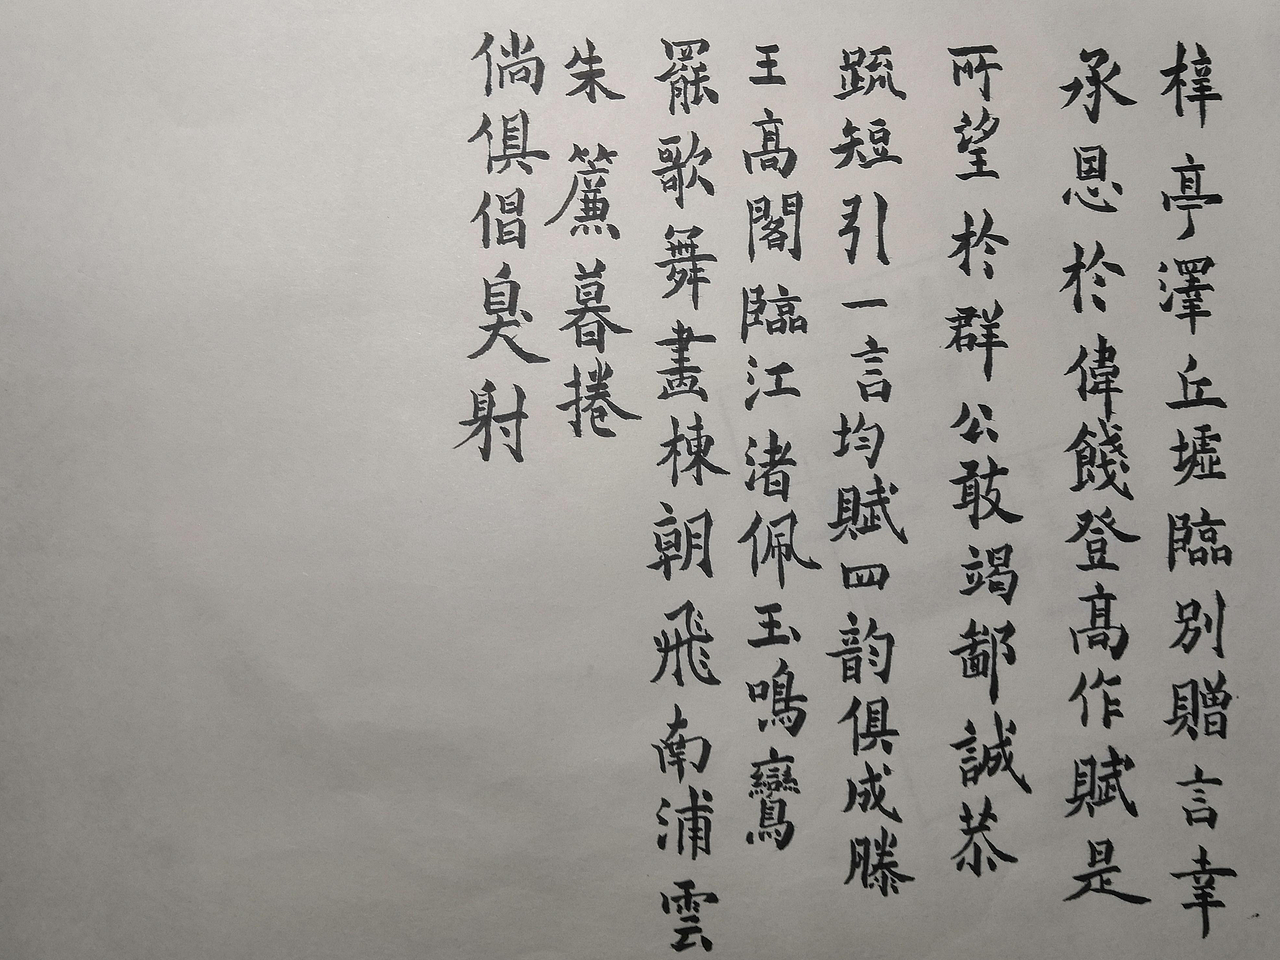 梓亭澤丘墟臨別贈言幸
承恩於偉餞登高作賦是
所望於群公敢竭鄙誠恭
疏短引一言均賦四韵俱成滕
王高閣臨江渚佩玉鳴鸞
罷歌舞畫棟朝飛南浦雲
朱簾暮捲
倘俱倡臭射